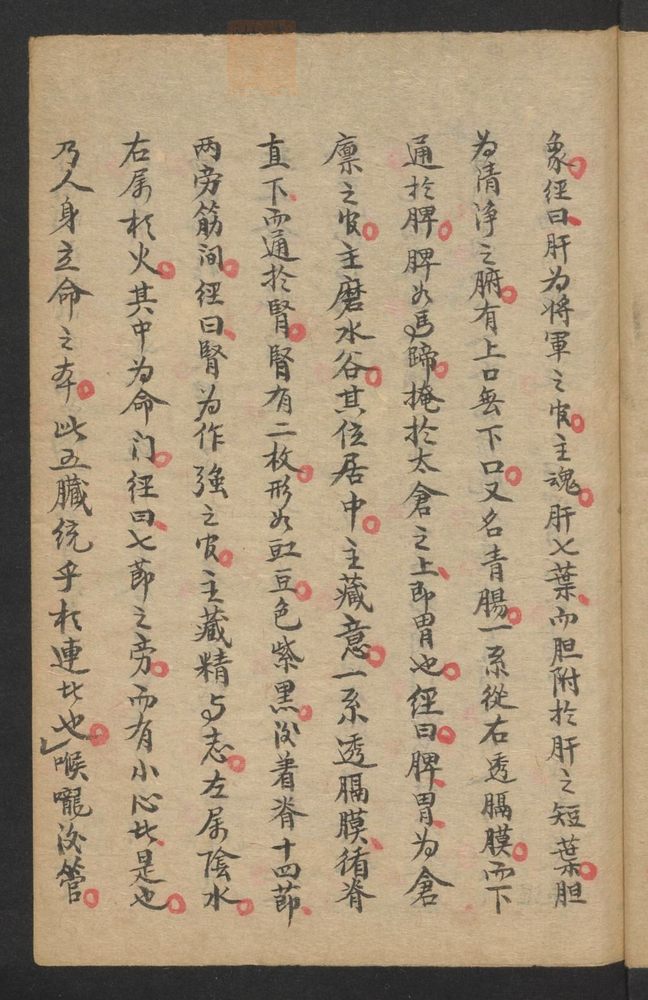 象。經曰、肝为将軍之官。主魂。肝七葉、而胆附於肝之短葉。胆
为清淨之腑。有上口無下口。又名青腸。一系從右透膈膜。而下
通於脾。脾如馬蹄。掩於太倉之上、即胃也。經曰、脾胃为倉
廩之官。主磨水谷。其位居中。主藏意。一系透膈膜、循脊
直下、而通於腎。腎有二枚。形如豇豆。色紫黑。後着脊十四節、
两旁筋间。經曰、腎为作強之官。主藏精与志。左属陰水。
右属於火。其中为命门。經曰、七節之旁。而有小心、此是也。
乃人身立命之本。此五臟統乎於連比也。喉嚨後管。